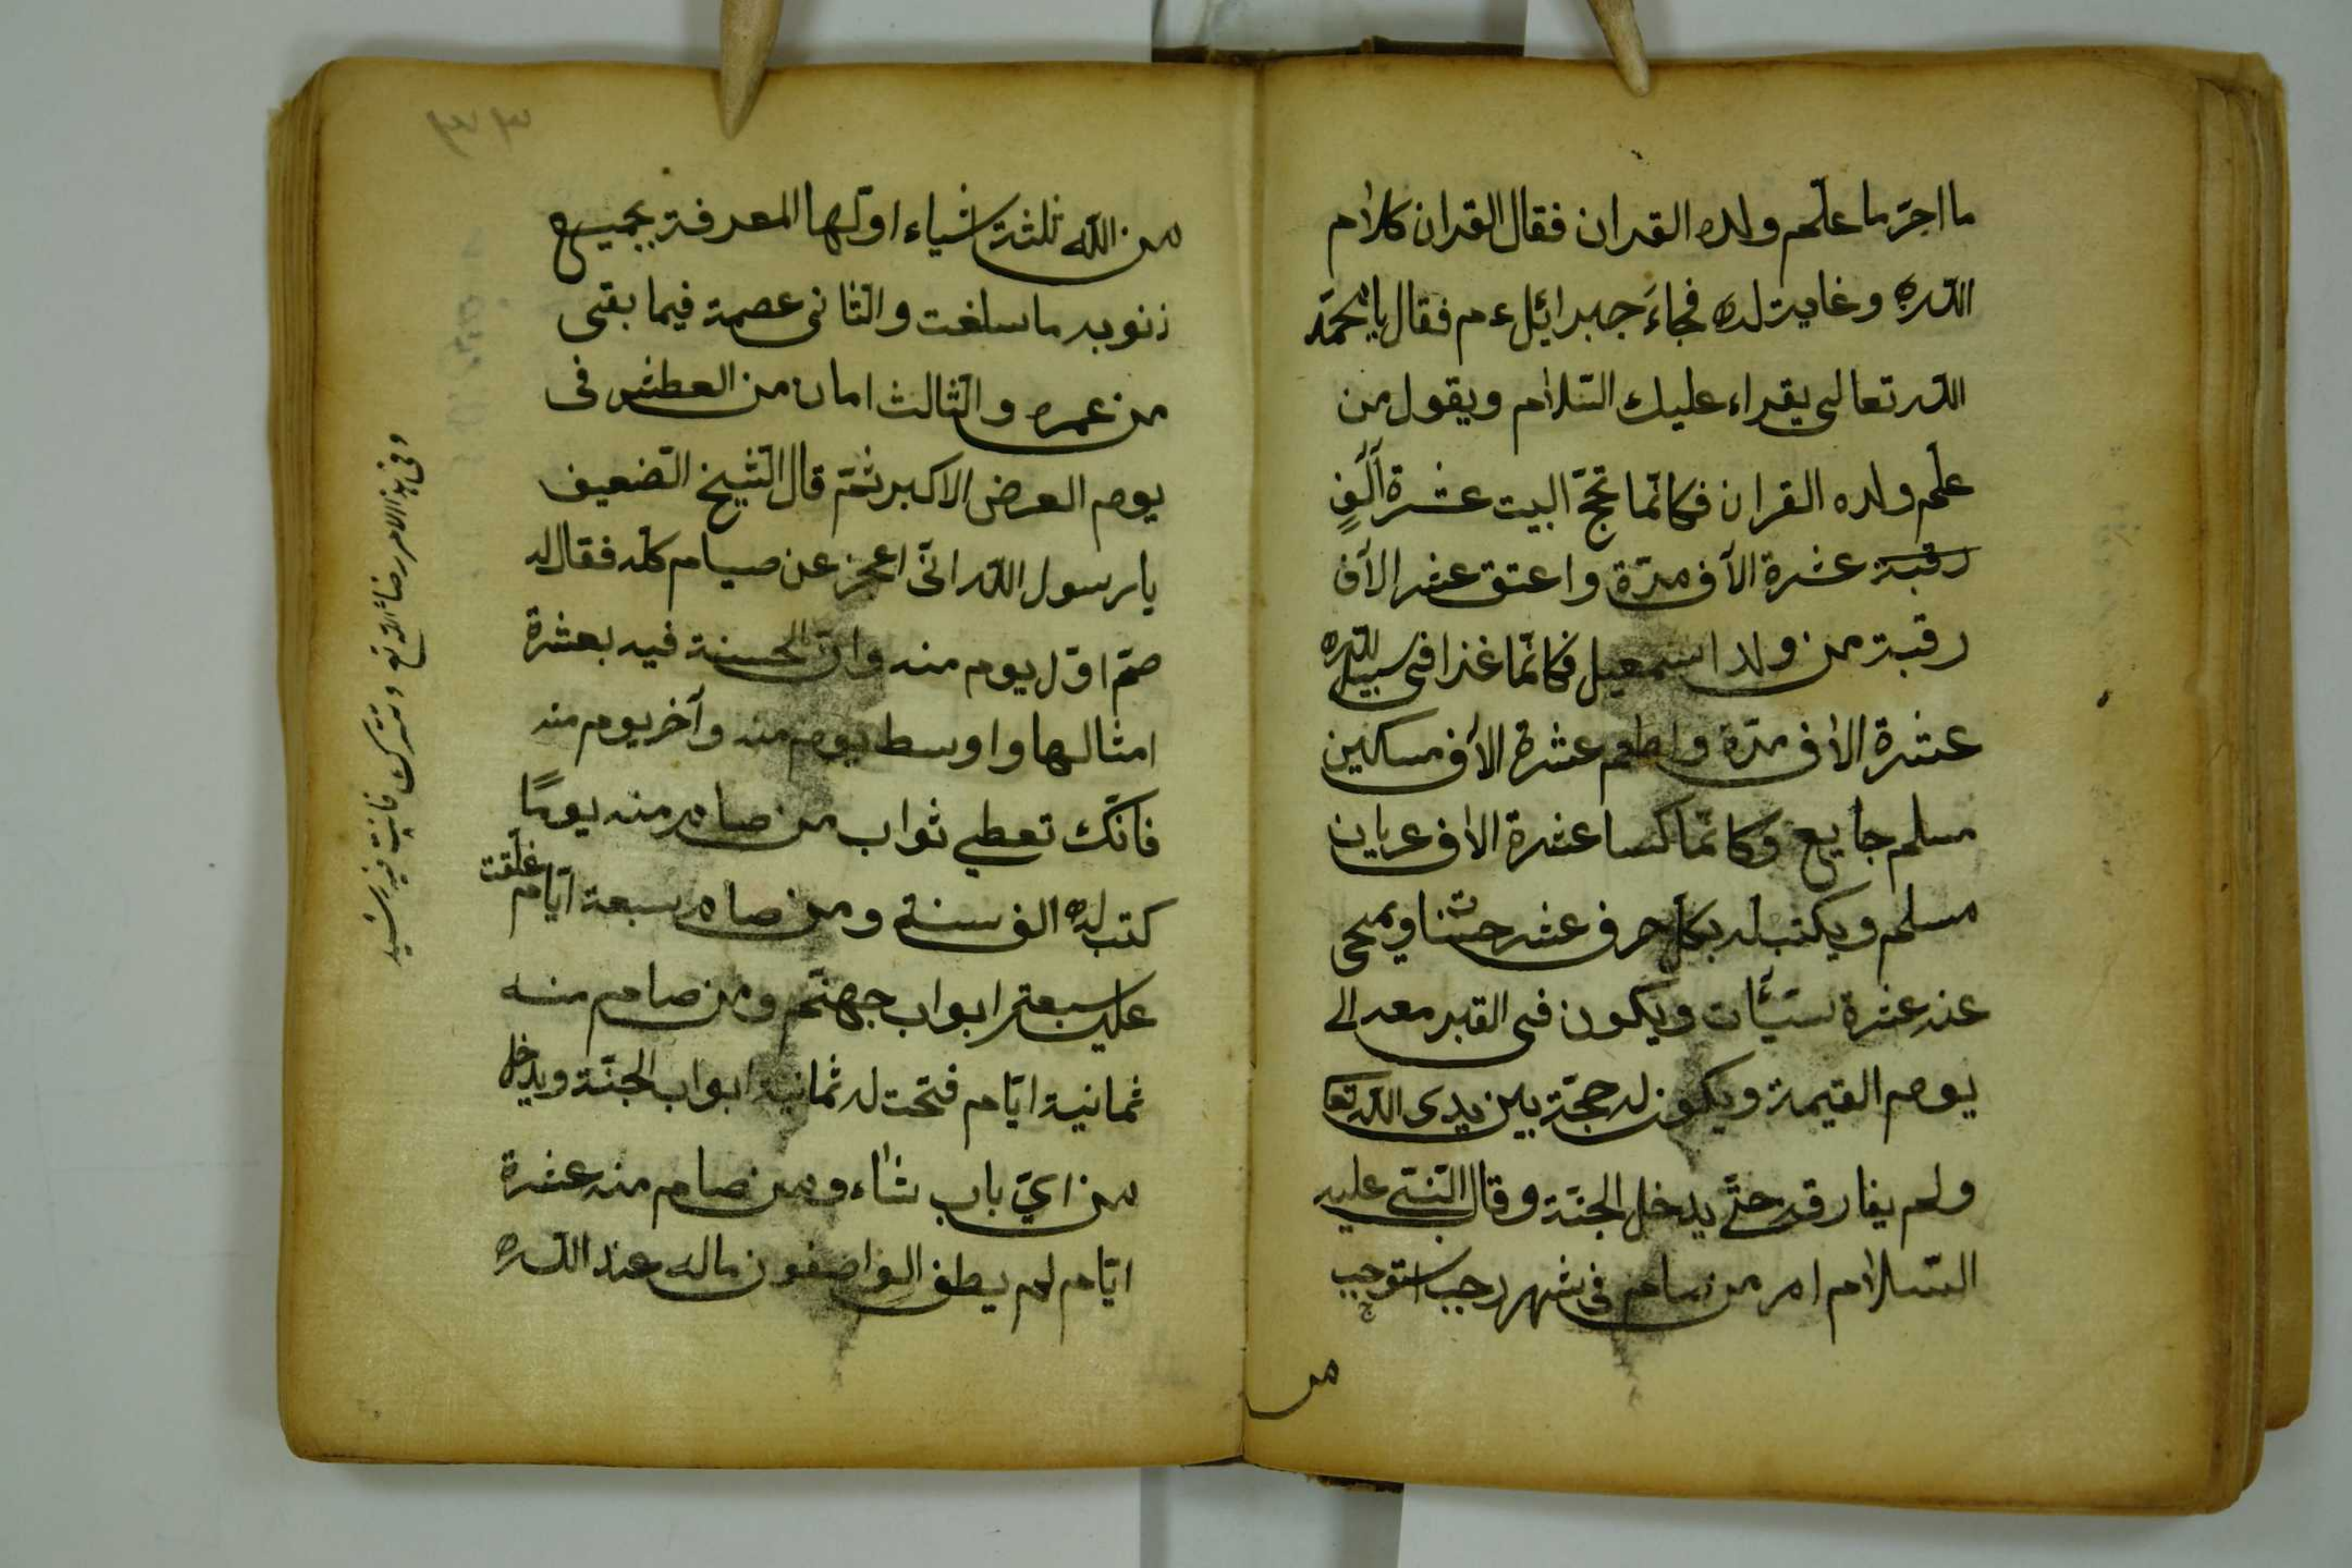 ما اجر ما علّم ولده القران فقال القران كلام
اللّه وغايت له فجاءَ جبرائيل ءم فقال يا محمّد
اللّه تعالى يقراء عليك السّلام ويقول من
علّم ولده القران فكانّما تحجّ البيت عشرة آلف
رقبة عشرة الآف مرّة واعتق عشر الآف
رقبة من ولد اسمعيل فكانّما غزا فى سبيل اللّه
عشرة الاف مرّة واطعم عشرة الاف مساكين
مسلم جايع وكانّما كسا عشرة الاف عريان
مسلم ويكتب له بكل حرف عشر حسنات ويمحى
عنه عشرة سيّأت ويكون فى القبر معه الى
يوم القيمة ويكون له حجّة بين يدى اللّه تعا
ولم يفارقه حتّى يدخل الجنّة وقال النّبىّ عليه
السّلام امر من صام فى شهر رجب استوجب
من
٣٣
من اللّه ثلثة اشياء اوّلها المعرفة بجميع
ذنوبه ما سلفت والثّانى عصمة فيما بقى
من عمره والثّالث امان من العطش فى
يوم العرض الاكبر ثمّ قال الشّيخ الضّعيف
يا رسول اللّه انّى اعجز عن صيام كلّه فقال له
صمّ اوّل يوم منه وانّ الحسنة فيه بعشرة
امثالها واوسط يوم منه وآخر يوم منه
فانّك تعطى ثواب من صام منه يومًا
كتب له الف سنة ومن صام سبعة ايّام غلّقت
عليه سبعة ابواب جهنّم ومن صام منه
ثمانية ايّام فتحت له ثمانية ابواب الجنّة ويدخل
من اىّ باب شاء ومن صام منه عشرة
ايّام لم يطف الواصفون ماله عند اللّه